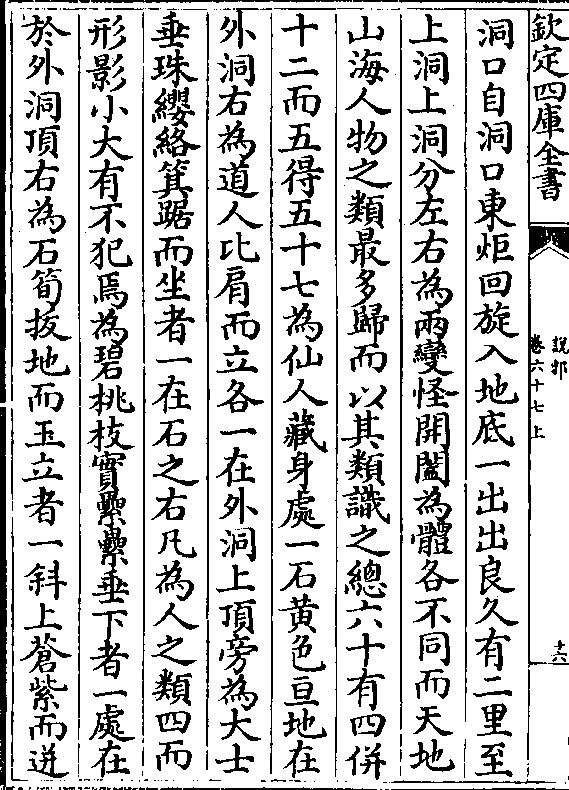 欽定四庫全書
說郛
卷六十七上
十六
洞口自洞口東炬回旋入地底一出出良久有二里至
上洞上洞分左右為兩變怪開闔為體各不同而天地
山海人物之類最多歸而以其類識之總六十有四併
十二而五得五十七為仙人藏身處一石黃色亘地在
外洞右為道人比肩而立各一在外洞上頂旁為大士
垂珠纓絡箕踞而坐者一在石之右凡為人之類四而
形影小大有不犯焉為碧桃枝實纍纍垂下者一處在
於外洞頂右為石筍拔地而玉立者一斜上蒼紫而迸